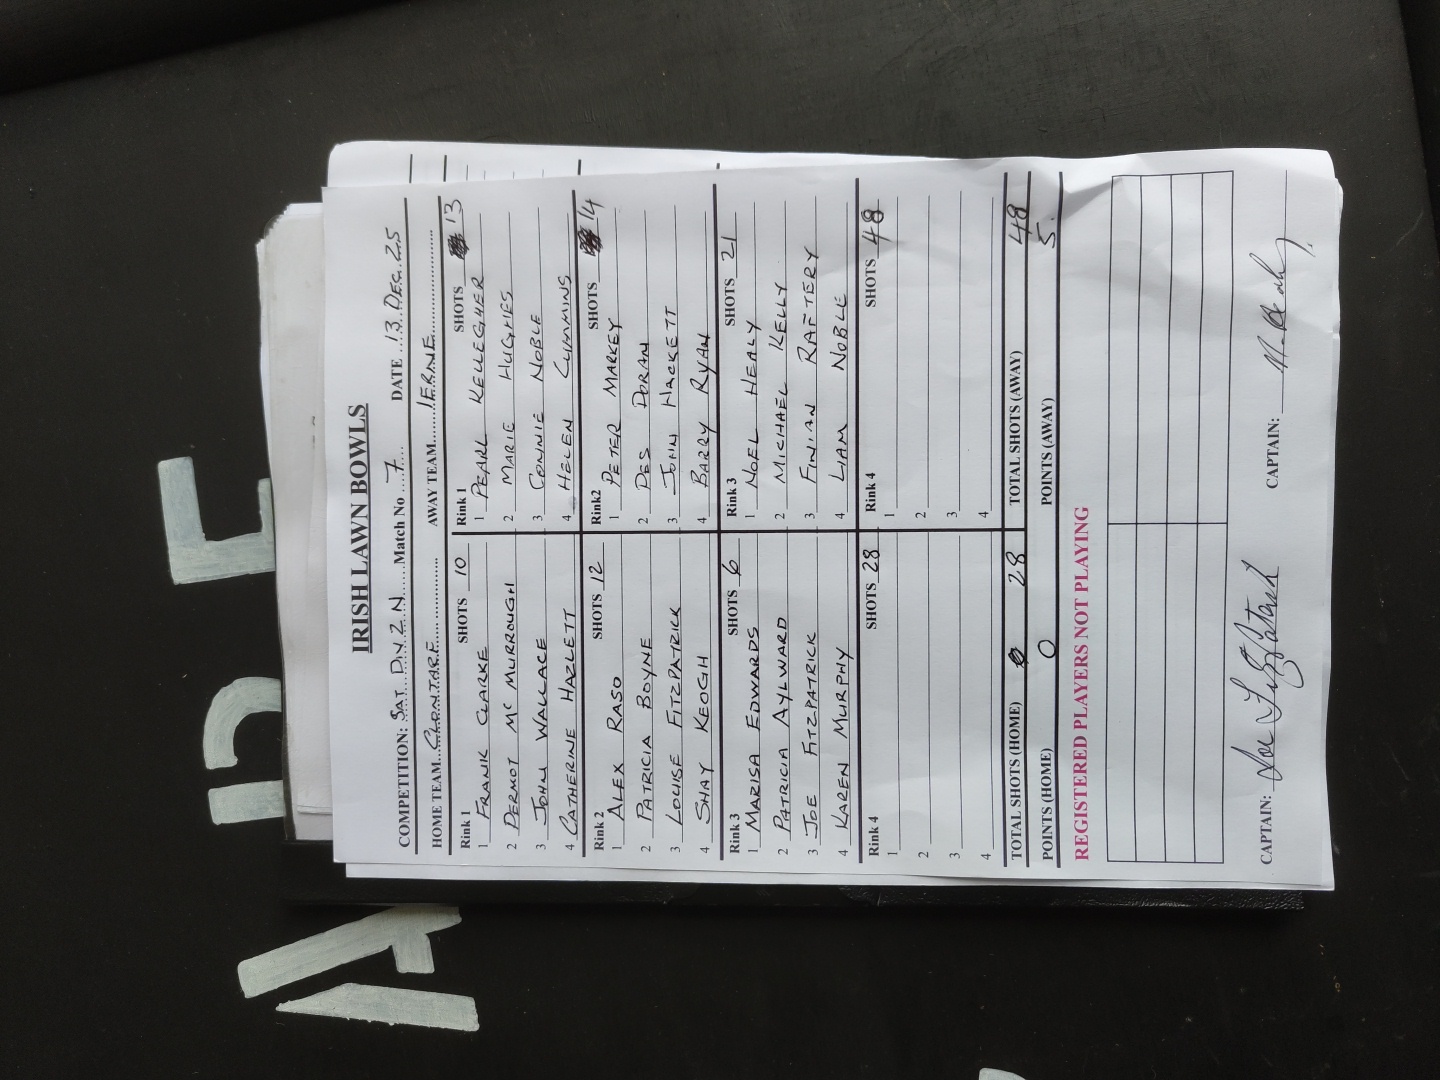 IRISH LAWN BOWLS
COMPETITION: SAT DIV 2 N Match No 7 DATE 13 DEC. 25
HOME TEAM CLONTARF AWAY TEAM IERNE
Rink 1 SHOTS 10 Rink 1 SHOTS 13
1 FRANK CLARKE 1 PEARL KELLEGHER
2 DERMOT Mc MURROUGH 2 MARIE HUGHES
3 JOHN WALLACE 3 CONNIE NOBLE
4 CATHERINE HAZLETT 4 HELEN CUMMINS
Rink 2 SHOTS 12 Rink2 SHOTS 14
1 ALEX RASO 1 PETER MARKEY
2 PATRICIA BOYNE 2 DES DORAN
3 LOUISE FITZPATRICK 3 JOHN HACKETT
4 SHAY KEOGH 4 BARRY RYAN
Rink 3 SHOTS 6 Rink 3 SHOTS 21
1 MARISA EDWARDS 1 NOEL HEALY
2 PATRICIA AYLWARD 2 MICHAEL KELLY
3 JOE FITZPATRICK 3 FINIAN RAFTERY
4 KAREN MURPHY 4 LIAM NOBLE
Rink 4 SHOTS 28 Rink 4 SHOTS 48
1 1
2 2
3 3
4 4
TOTAL SHOTS (HOME) 28 TOTAL SHOTS (AWAY) 48
POINTS (HOME) 0 POINTS (AWAY) 5.
REGISTERED PLAYERS NOT PLAYING
CAPTAIN: Joe Fitzpatrick CAPTAIN: